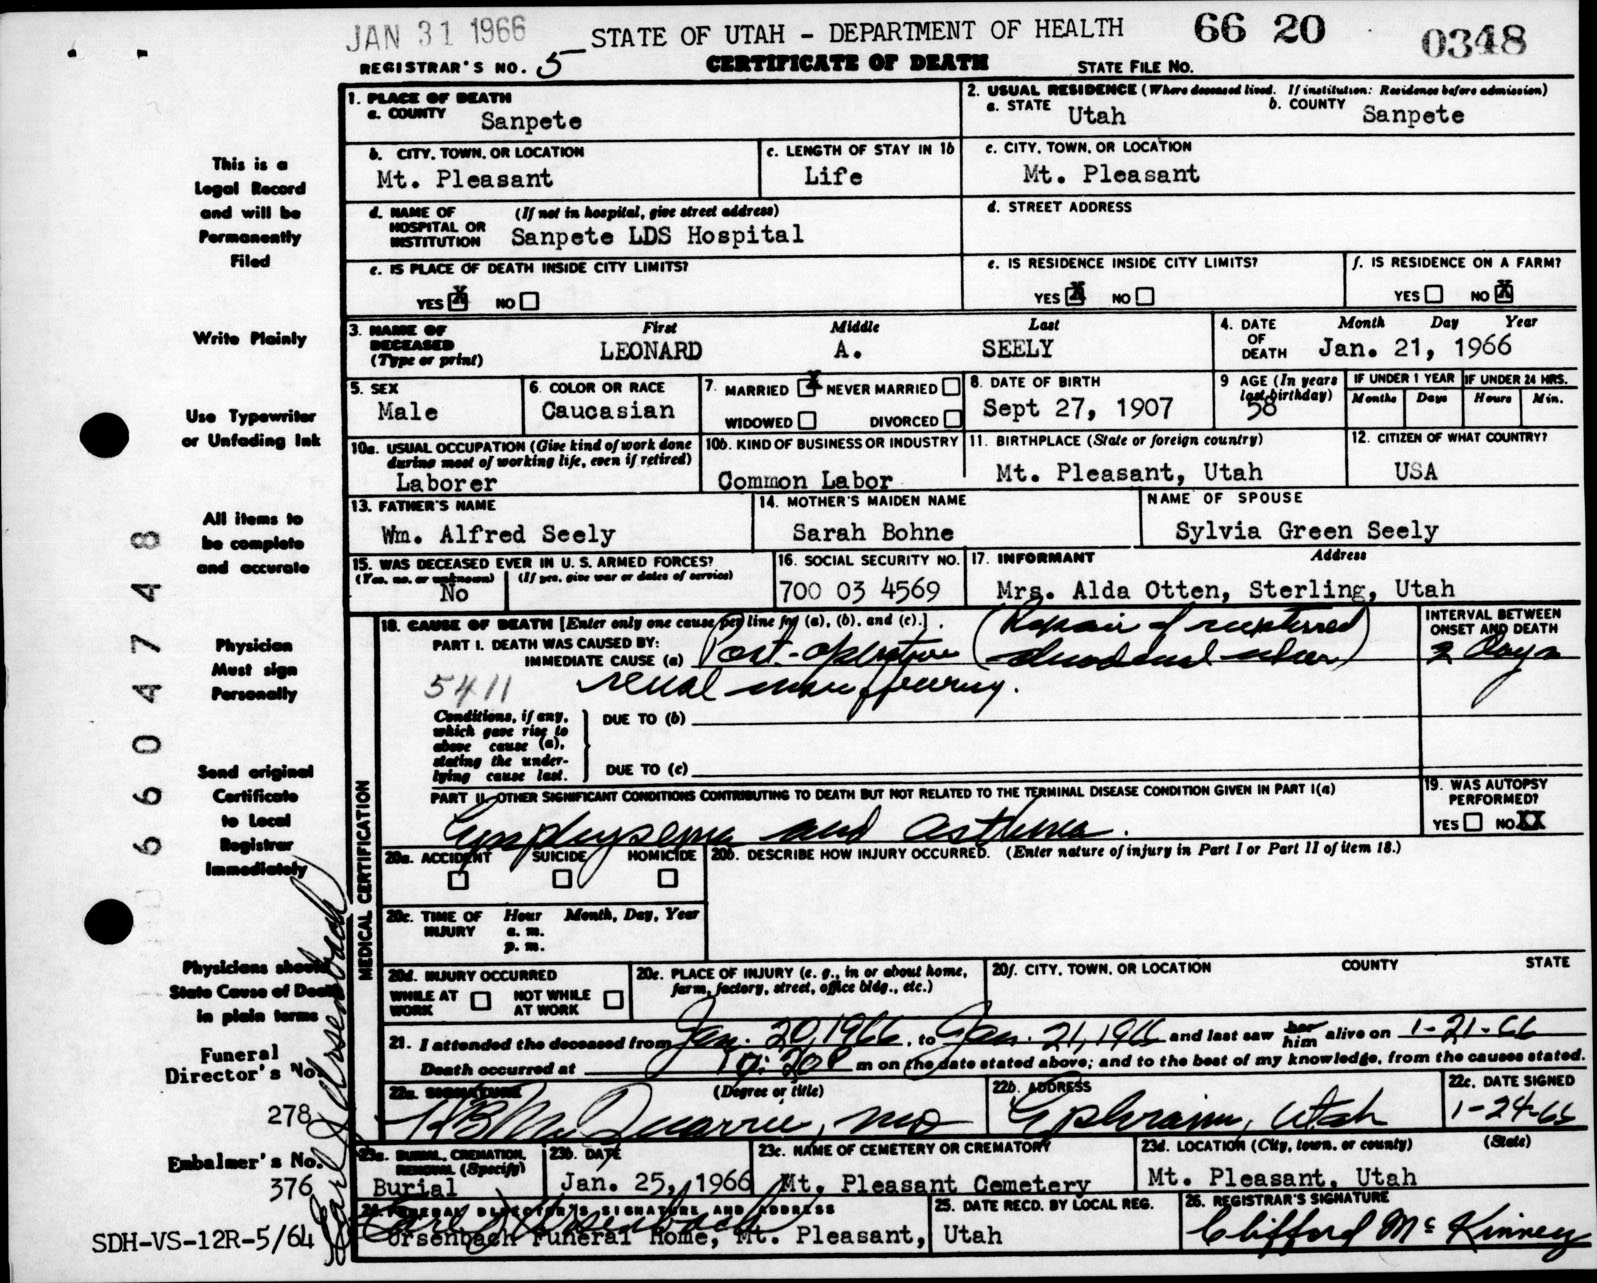 JAN 31 1966
STATE OF UTAH - DEPARTMENT OF HEALTH
66 20
0348
REGISTRAR'S NO. 5
CERTIFICATE OF DEATH
STATE FILE NO.
This is a
Legal Record
and will be
Permanently
Filed
Write Plainly
Use Typewriter
or Unfading Ink
All items to
be complete
and accurate
Physician
Must sign
Personally
Send original
Certificate
to Local
Registrar
Immediately
Physicians should
State Cause of Death
in plain terms
Funeral
Director's No.
278
Embalmer's No.
376
SDH-VS-12R-5/64
6604748
Earl J Ursenbach
1. PLACE OF DEATH
a. COUNTY
Sanpete
2. USUAL RESIDENCE (Where deceased lived. If institution: Residence before admission)
a. STATE
Utah
b. COUNTY
Sanpete
b. CITY, TOWN, OR LOCATION
Mt. Pleasant
c. LENGTH OF STAY IN 1b
Life
c. CITY, TOWN, OR LOCATION
Mt. Pleasant
d. NAME OF (If not in hospital, give street address)
HOSPITAL OR
INSTITUTION
Sanpete LDS Hospital
d. STREET ADDRESS
e. IS PLACE OF DEATH INSIDE CITY LIMITS?
YES X NO
e. IS RESIDENCE INSIDE CITY LIMITS?
YES X NO
f. IS RESIDENCE ON A FARM?
YES NO X
3. NAME OF
DECEASED
(Type or print)
First Middle Last
LEONARD A. SEELY
4. DATE
OF
DEATH
Month Day Year
Jan. 21, 1966
5. SEX
Male
6. COLOR OR RACE
Caucasian
7. MARRIED X NEVER MARRIED
WIDOWED DIVORCED
8. DATE OF BIRTH
Sept 27, 1907
9 AGE (In years
last birthday)
58
IF UNDER 1 YEAR
Months Days
IF UNDER 24 HRS.
Hours Min.
10a. USUAL OCCUPATION (Give kind of work done
during most of working life, even if retired)
Laborer
10b. KIND OF BUSINESS OR INDUSTRY
Common Labor
11. BIRTHPLACE (State or foreign country)
Mt. Pleasant, Utah
12. CITIZEN OF WHAT COUNTRY?
USA
13. FATHER'S NAME
Wm. Alfred Seely
14. MOTHER'S MAIDEN NAME
Sarah Bohne
NAME OF SPOUSE
Sylvia Green Seely
15. WAS DECEASED EVER IN U. S. ARMED FORCES?
(Yes, no, or unknown) (If yes, give war or dates of service)
No
16. SOCIAL SECURITY NO.
700 03 4569
17. INFORMANT Address
Mrs. Alda Otten, Sterling, Utah
MEDICAL CERTIFICATION
18. CAUSE OF DEATH [Enter only one cause per line for (a), (b), and (c).]
PART I. DEATH WAS CAUSED BY:
IMMEDIATE CAUSE (a)
Post-operative (Repair of ruptured
duodenal ulcer)
renal insufficiency.
5411
INTERVAL BETWEEN
ONSET AND DEATH
2 Days
Conditions, if any,
which gave rise to
above cause (a),
stating the under-
lying cause last.
DUE TO (b)
DUE TO (c)
PART II. OTHER SIGNIFICANT CONDITIONS CONTRIBUTING TO DEATH BUT NOT RELATED TO THE TERMINAL DISEASE CONDITION GIVEN IN PART I(a)
Emphysema and asthma.
19. WAS AUTOPSY
PERFORMED?
YES NO XX
20a. ACCIDENT SUICIDE HOMICIDE
20b. DESCRIBE HOW INJURY OCCURRED. (Enter nature of injury in Part I or Part II of item 18.)
20c. TIME OF Hour Month, Day, Year
INJURY a. m.
p. m.
20d. INJURY OCCURRED
WHILE AT NOT WHILE
WORK AT WORK
20e. PLACE OF INJURY (e. g., in or about home,
farm, factory, street, office bldg., etc.)
20f. CITY, TOWN, OR LOCATION COUNTY STATE
21. I attended the deceased from Jan. 20, 1966, to Jan. 21, 1966 and last saw her him alive on 1-21-66
Death occurred at 10:20 P m on the date stated above; and to the best of my knowledge, from the causes stated.
22a. SIGNATURE (Degree or title)
McQuarrie, MD
22b. ADDRESS
Ephraim, Utah
22c. DATE SIGNED
1-24-66
23a. BURIAL, CREMATION,
REMOVAL (Specify)
Burial
23b. DATE
Jan. 25, 1966
23c. NAME OF CEMETERY OR CREMATORY
Mt. Pleasant Cemetery
23d. LOCATION (City, town, or county) (State)
Mt. Pleasant, Utah
24. FUNERAL DIRECTOR'S SIGNATURE AND ADDRESS
Earl J Ursenbach
Ursenbach Funeral Home, Mt. Pleasant, Utah
25. DATE RECD. BY LOCAL REG.
26. REGISTRAR'S SIGNATURE
Clifford McKinney